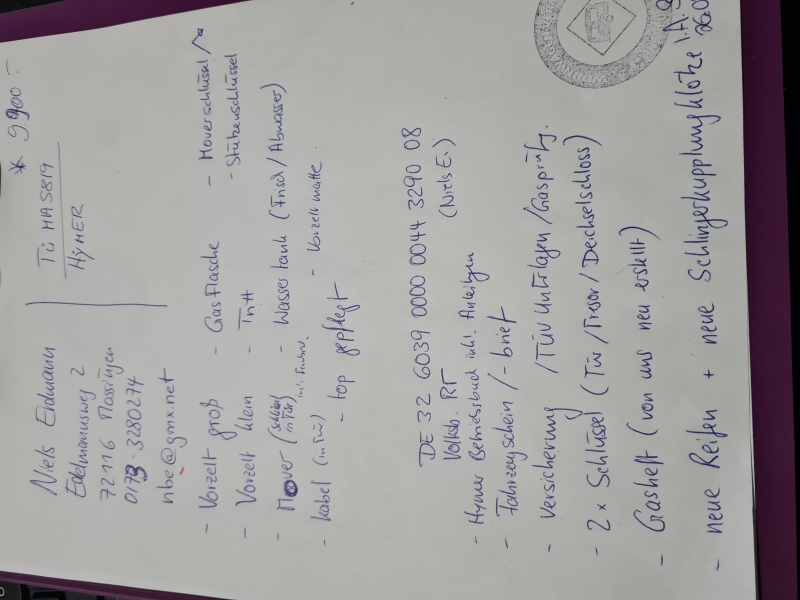 * 9900.-
Niels Erdmann
Edelmannsweg 2
72116 Mössingen
0173-3280274
nbe@gmx.net
TÜ MA5819
HYMER
- Vorzelt groß - Gasflasche - Moverschlüssel
- Vorzelt klein - Tritt - Stützenschlüssel
- Mover (Schlüssel in Tür) - Wassertank (Frisch/Abwasser)
- Kabel (in Tür) - Vorzeltmatte
- top gepflegt
DE 32 6039 0000 0044 3290 08
Volksb. RT (Niels E.)
- Hymer Betriebsbuch inkl. Anleitungen
- Fahrzeugschein / -brief
- Versicherung / TÜV Unterlagen / Gasprüfg.
- 2x Schlüssel (Tür / Tresor / Deichselschloss)
- Gasheft (von uns neu erstellt)
- neue Reifen + neue Schlingerkupplungklötze